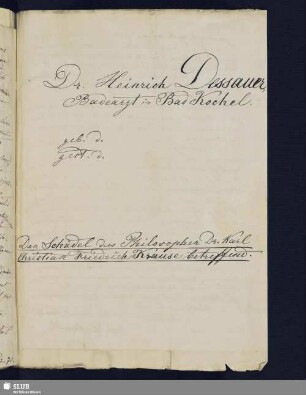 Dr. Heinrich Dessauer,
Badearzt in Bad Kochel.
geb. d.
gest. d.
Den Schädel des Philosophen Dr. Karl
Christian Friedrich Krause betreffend.
SLUB